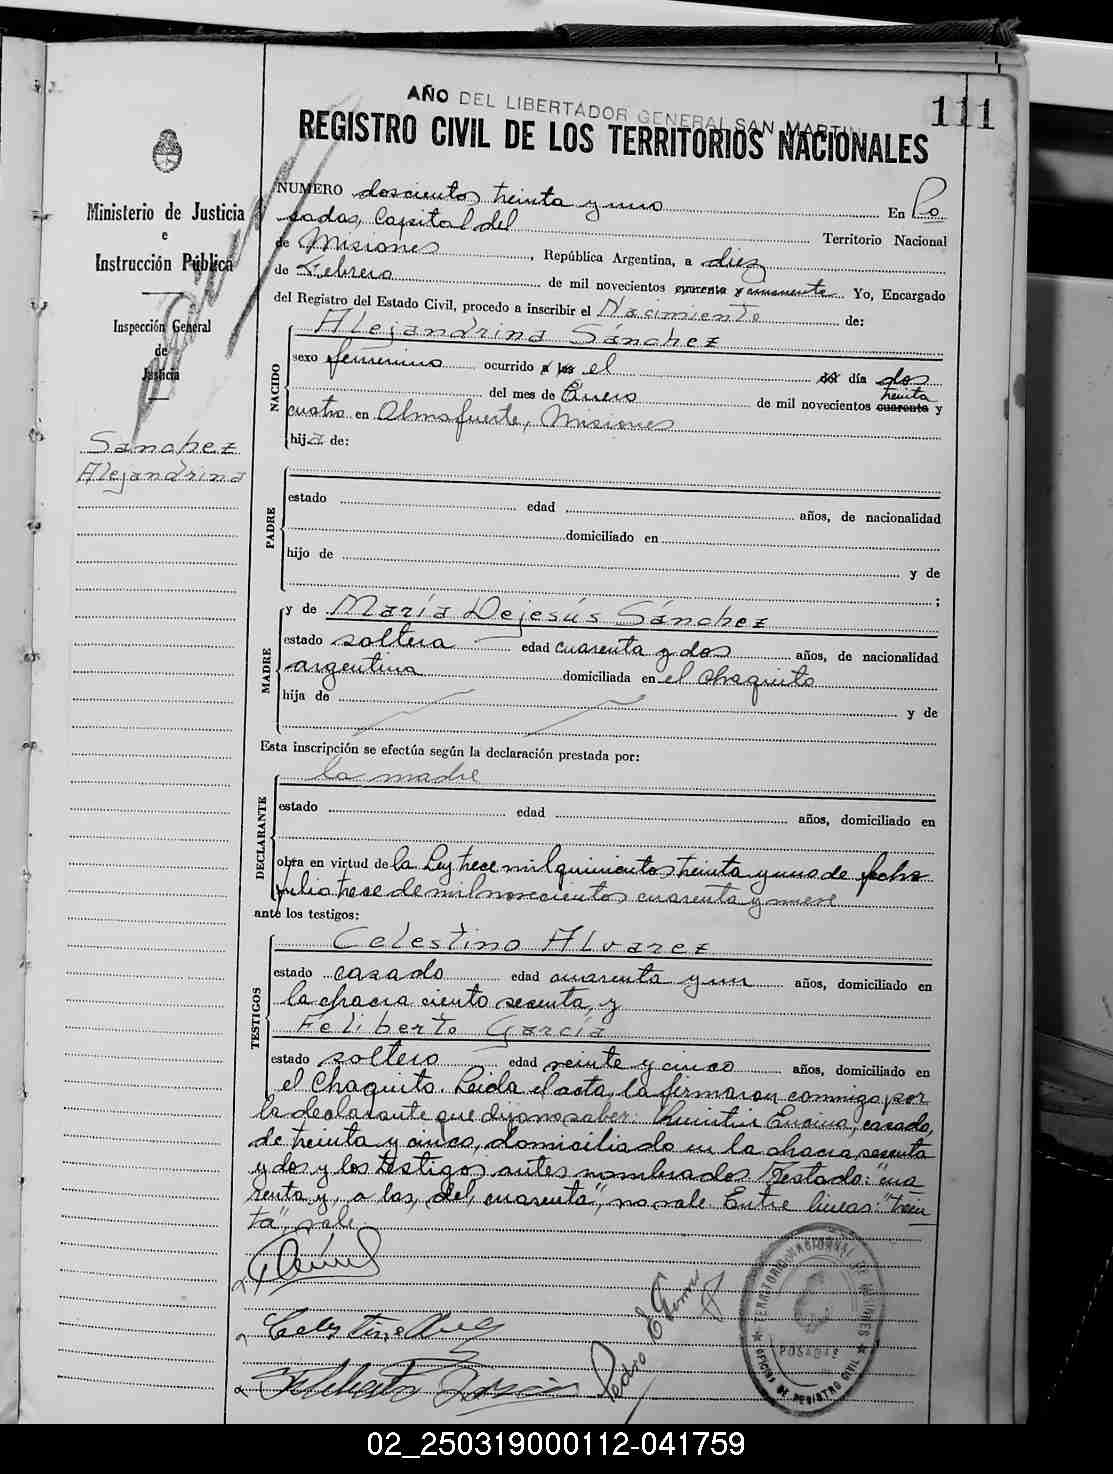 AÑO DEL LIBERTADOR GENERAL SAN MARTIN
111
REGISTRO CIVIL DE LOS TERRITORIOS NACIONALES
Ministerio de Justicia
e
Instrucción Pública
Inspección General
de
Justicia
Sánchez
Alejandrina
NUMERO doscientos treinta y uno En Po
sadas, Capital del Territorio Nacional
de Misiones, República Argentina, a diez
de Febrero de mil novecientos cuarenta y cincuenta Yo, Encargado
del Registro del Estado Civil, procedo a inscribir el Nacimiento de:
NACIDO
Alejandrina Sánchez
sexo femenino ocurrido a las el del día dos
del mes de Enero de mil novecientos cuarenta treinta y
cuatro en Almafuerte, Misiones
hija de:
PADRE
estado edad años, de nacionalidad
domiciliado en
hijo de y de
;
MADRE
y de María Dejesús Sánchez
estado soltera edad cuarenta y dos años, de nacionalidad
argentina domiciliada en el Chaquito
hija de y de
Esta inscripción se efectúa según la declaración prestada por:
DECLARANTE
la madre
estado edad años, domiciliado en
obra en virtud de la Ley trece mil quinientos treinta y uno de fecha
julio trece de mil novecientos cuarenta y nueve
ante los testigos:
TESTIGOS
Celestino Alvarez
estado casado edad cuarenta y un años, domiciliado en
la chacra ciento sesenta, y
Feliberto García
estado soltero edad veinte y cinco años, domiciliado en
el Chaquito. Leida el acta, la firmaron conmigo, por
la declarante que dijo no saber: Quintin Encina, casado,
de treinta y cinco, domiciliado en la chacra sesenta
y dos y los testigos antes nombrados Testado: "cua
renta y, a las, del, cuarenta", no vale. Entre lineas: "trein
ta", vale.
TERRITORIO NACIONAL DE MISIONES
POSADAS
OFICINA DE REGISTRO CIVIL
02_250319000112-041759